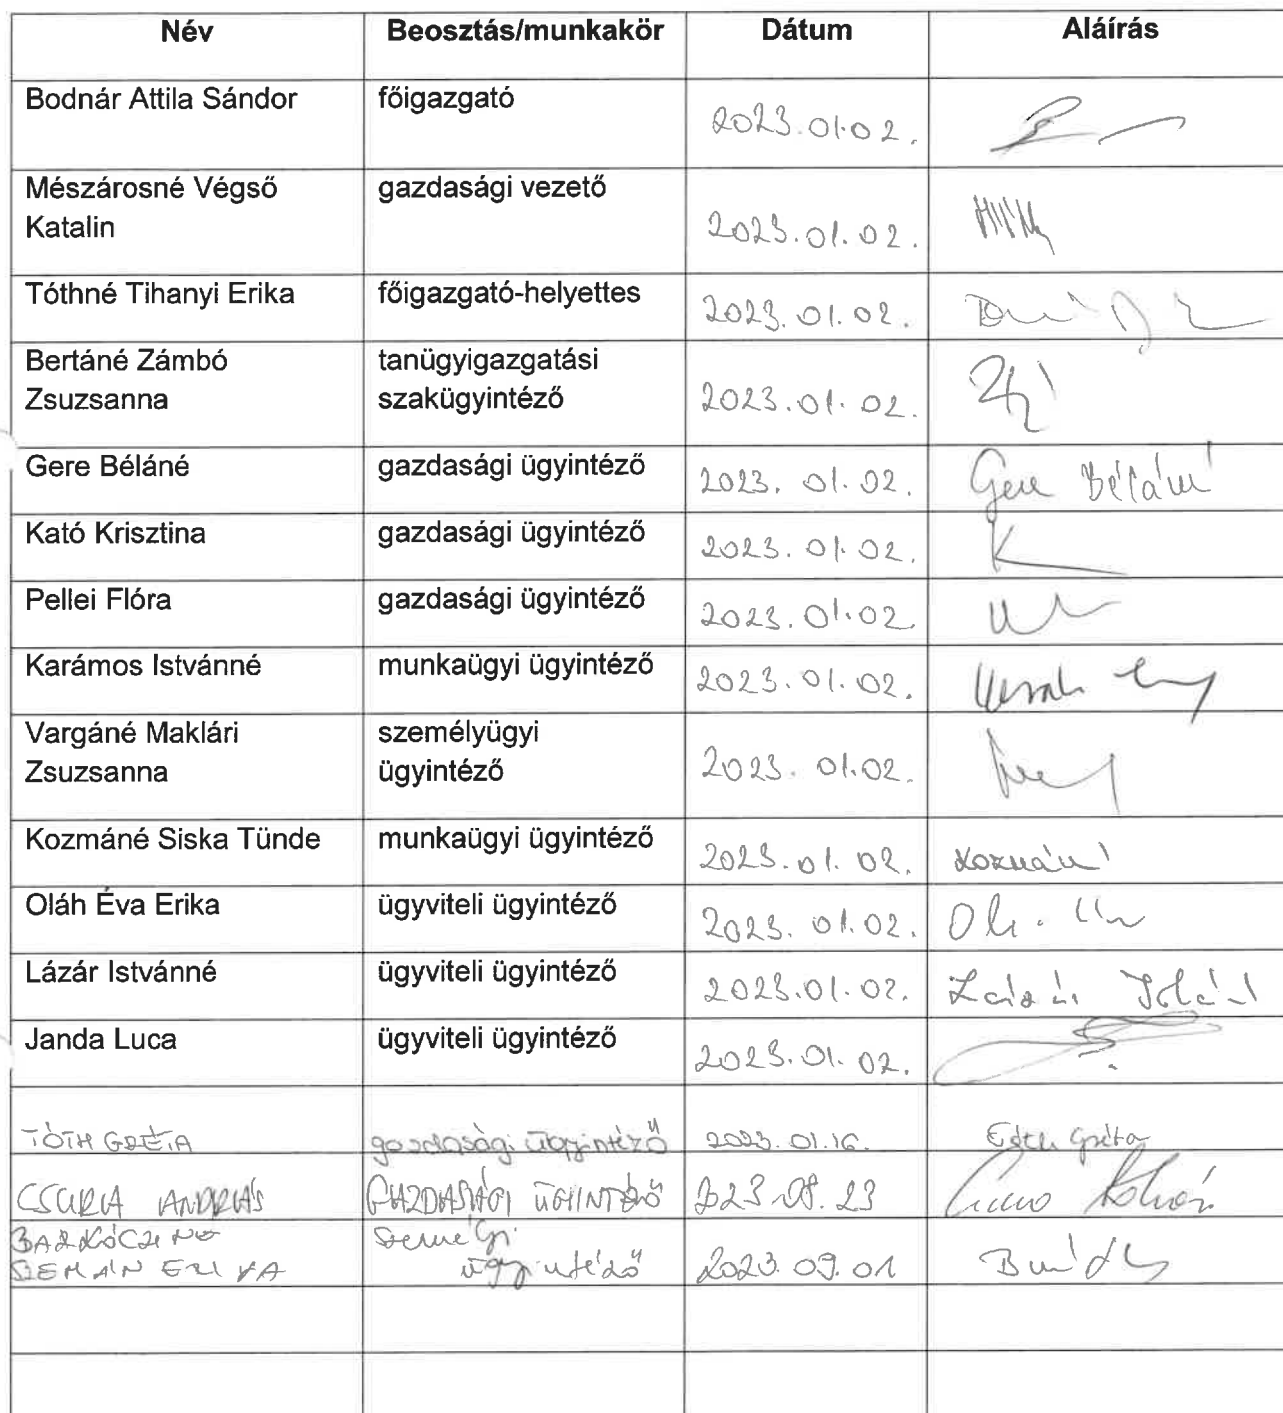 Név Beosztás/munkakör Dátum Aláírás
Bodnár Attila Sándor főigazgató 2023.01.02.
Mészárosné Végső gazdasági vezető
Katalin 2023.01.02.
Tóthné Tihanyi Erika főigazgató-helyettes 2023.01.02.
Bertáné Zámbó tanügyigazgatási
Zsuzsanna szakügyintéző 2023.01.02.
Gere Béláné gazdasági ügyintéző 2023.01.02. Gere Béláné
Kató Krisztina gazdasági ügyintéző 2023.01.02. K
Pellei Flóra gazdasági ügyintéző 2023.01.02.
Karámos Istvánné munkaügyi ügyintéző 2023.01.02.
Vargáné Maklári személyügyi
Zsuzsanna ügyintéző 2023.01.02.
Kozmáné Siska Tünde munkaügyi ügyintéző 2023.01.02. Kozmáné
Oláh Éva Erika ügyviteli ügyintéző 2023.01.02.
Lázár Istvánné ügyviteli ügyintéző 2023.01.02. Lázár
Janda Luca ügyviteli ügyintéző 2023.01.02.
TÓTH GRÉTA gazdasági ügyintéző 2023.01.16. Tóth Gréta
ANDRÁS GAZDASÁGI ÜGYINTÉZŐ 2023.08.23
BARKÓCZINÉ
ügyintéző 2023.09.01